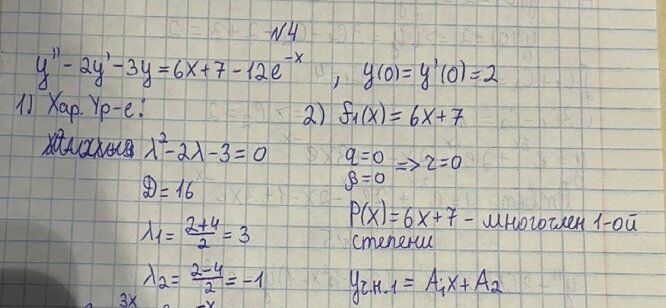 №4
y'' - 2y' - 3y = 6x + 7 - 12e^{-x} , y(0) = y'(0) = 2
1) Хар. Ур-е:
λ² - 2λ - 3 = 0
D = 16
λ₁ = (2+4)/2 = 3
λ₂ = (2-4)/2 = -1
2) f₁(x) = 6x + 7
α = 0
β = 0 => r = 0
P(x) = 6x + 7 - многочлен 1-ой
степени
Yч.н.1 = A₁x + A₂
3x